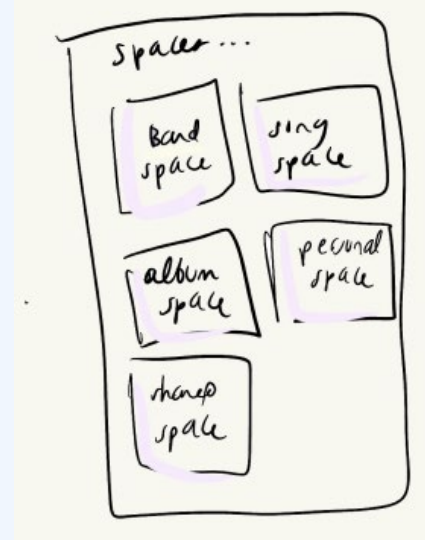 Spaces...
Band
space
song
space
album
space
personal
space
shared
space